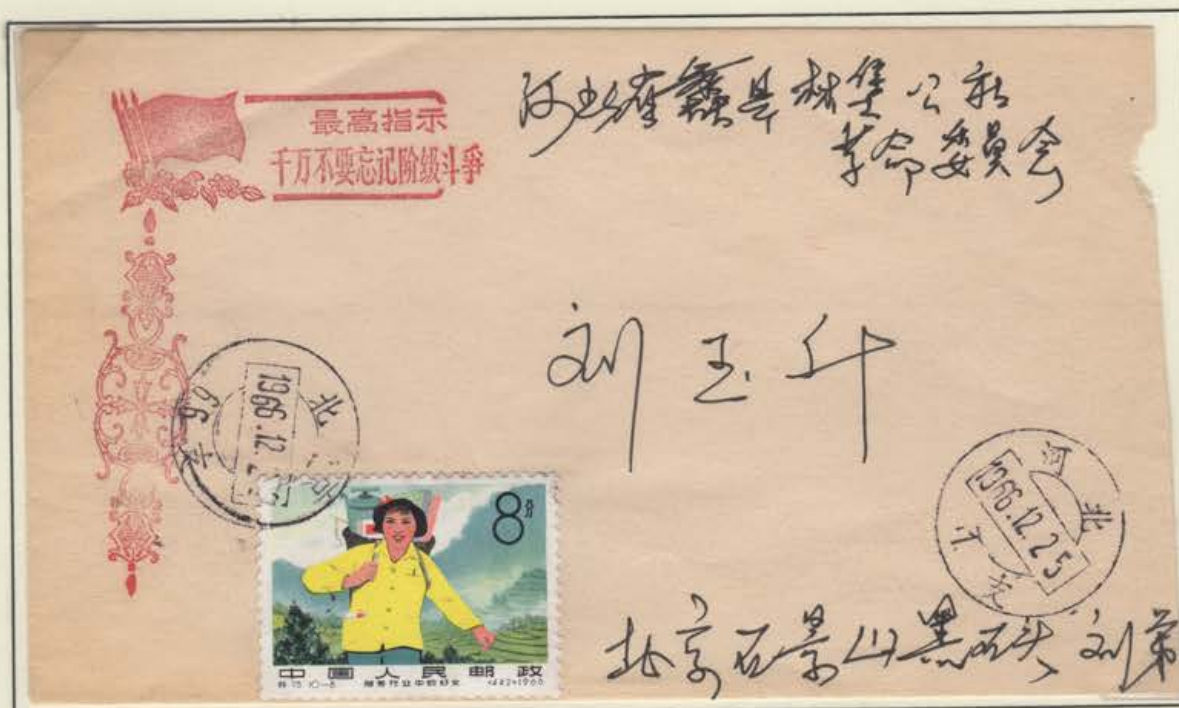 最高指示
千万不要忘记阶级斗争
河北省蠡县林堡公社
革命委员会
刘玉升
北
1966.12.2
66
河北
1966.12.25
8分
中国人民邮政
特75.10-8 服务行业中的妇女 (442)1966
北京石景山黑石头刘弟